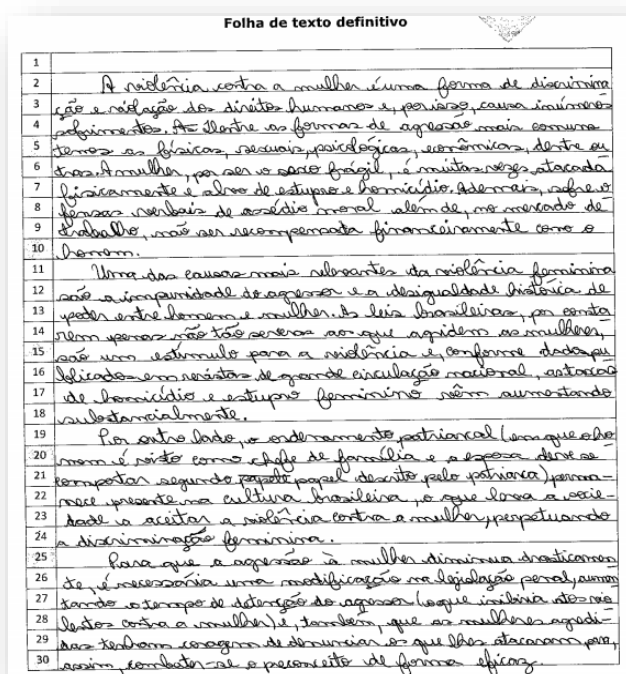 Folha de texto definitivo
1
2 A violência contra a mulher é uma forma de discrimina
3 ção e violação dos direitos humanos e, por isso, causa inúmeros
4 sofrimentos. As Dentre as formas de agressão mais comuns
5 temos as físicas, sexuais, psicológicas, econômicas, dentre ou
6 tras. A mulher, por ser o sexo frágil, é muitas vezes atacada
7 fisicamente e alvo de estupro e homicídio. Ademais, sofre o
8 fensas verbais de assédio moral além de, no mercado de
9 trabalho, não ser recompensata financeiramente como o
10 homem.
11 Uma das causas mais relevantes da violência feminina
12 são a impunidade do agressor e a desigualdade histórica de
13 poder entre homem e mulher. As leis brasileiras, por conta
14 rem penas não tão severas aos que agridem as mulheres,
15 são um estímulo para a violência e, conforme dados pu
16 blicados em revistas de grande circulação nacional, as taxas
17 de homicídio e estupro feminino vêm aumentando
18 substancialmente.
19 Por outro lado, o ordenamento patriarcal (em que o ho
20 mem é visto como chefe de família e a esposa deve se
21 comportar segundo papel descrito pelo patriarca) perma-
22 nece presente na cultura brasileira, o que leva a socie-
23 dade a aceitar a violência contra a mulher, perpetuando
24 a discriminação feminina.
25 Para que a agressão à mulher diminua drasticamen
26 te, é necessária uma modificação na legislação penal, aumen
27 tando o tempo de detenção do agressor (o que inibiria atos vio
28 lentos contra a mulher) e, também, que as mulheres agredi-
29 das tenham coragem de denunciar os que lhes atacaram para,
30 assim, combater-se o preconceito de forma eficaz.